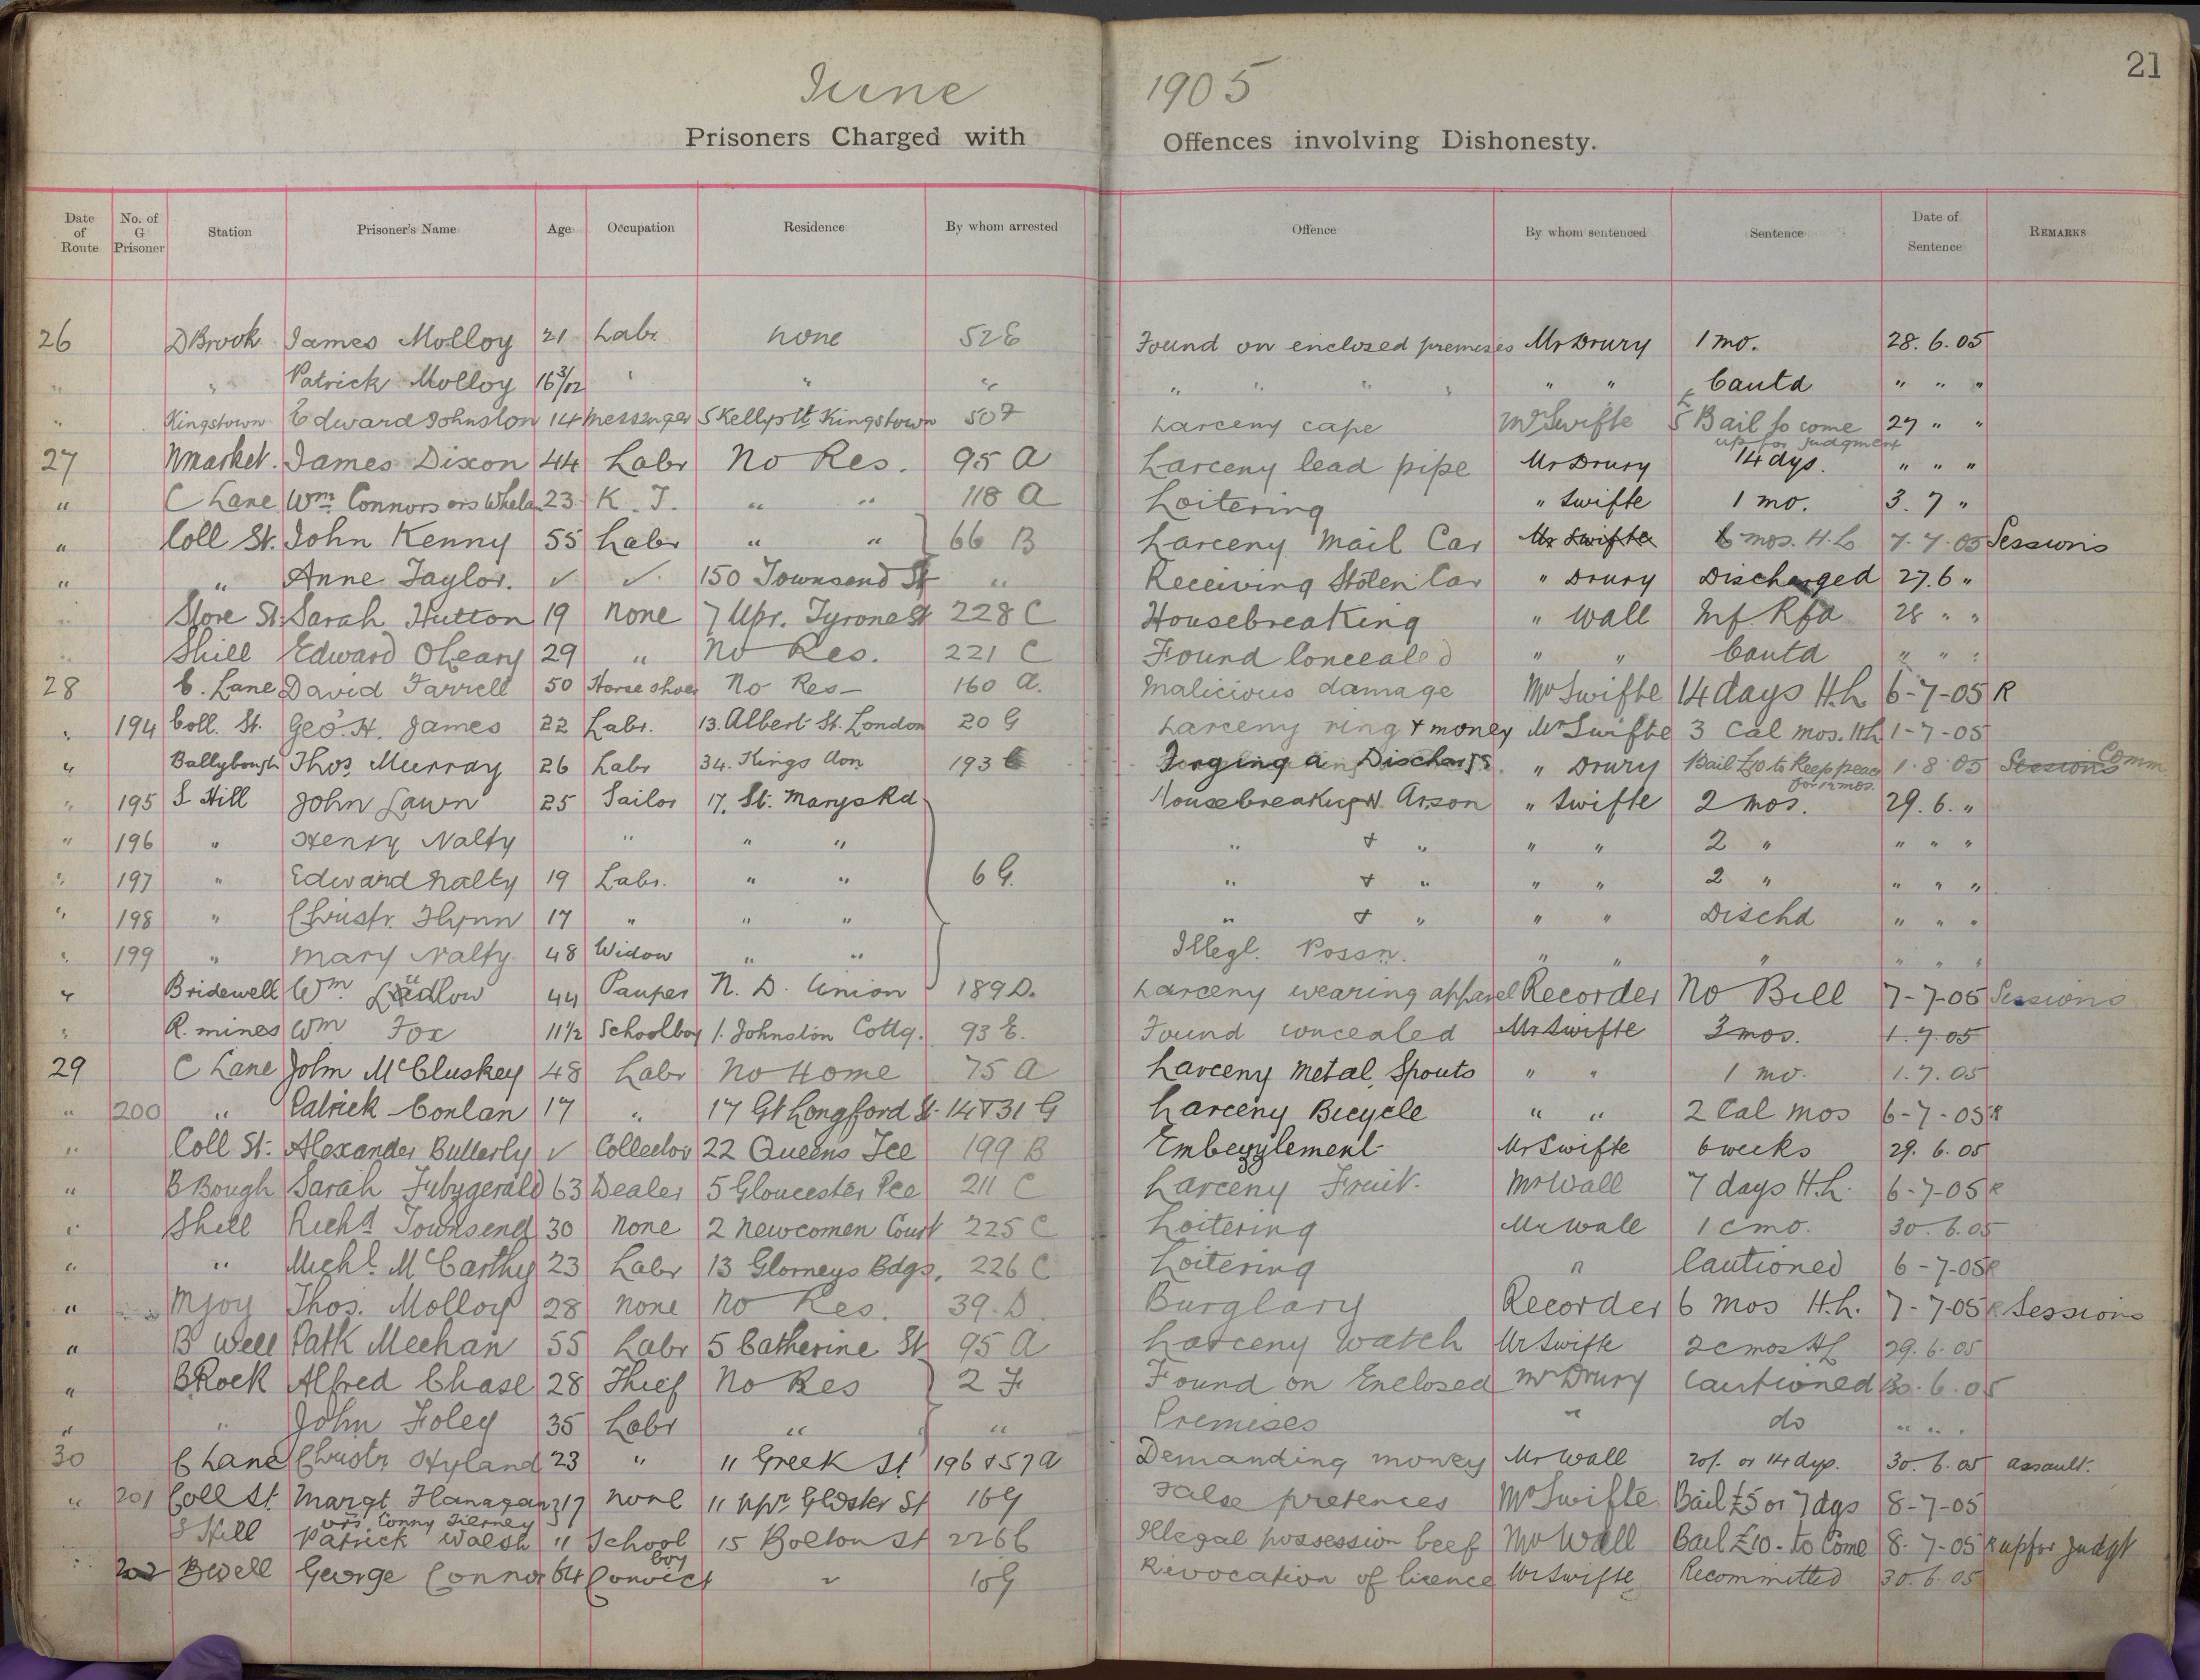 21
June 1905
Prisoners Charged with Offences involving Dishonesty.
Date of Route No. of G Prisoner Station Prisoner's Name Age Occupation Residence By whom arrested Offence By whom sentenced Sentence Date of Sentence REMARKS
26 DBrook James Molloy 21 Labr none 52 E Found on enclosed premises Mr Drury 1 mo. 28. 6. 05
" " Patrick Molloy 16 3/12 " " " " " " " " " Cautd " " "
" Kingstown Edward Johnston 14 Messenger 5 Kellys Ct Kingstown 507 Larceny cape Mr Swifte Bail to come 27 " "
up for judgment
27 Nmarket. James Dixon 44 Labr No Res. 95 A Larceny lead pipe Mr Drury 14 dys. " " "
" C Lane Wm. Connors ors Whelan 23 K. J. " " 118 A Loitering " Swifte 1 mo. 3. 7 "
" Coll St. John Kenny 55 Labr " " 66 B Larceny Mail Car Mr Swifte 6 mos. H.L 7. 7. 05 Sessions
" " Anne Taylor. ✓ ✓. 150 Townsend St " Receiving Stolen Car " Drury Discharged 27. 6 "
" Store St. Sarah Hutton 19 none 7 Upr. Tyrone St 228 C Housebreaking " Wall Inf. Rfd 28 " "
" Shill Edward OLeary 29 " No Res. 221 C Found Concealed " " Cautd " " "
28 C. Lane David Farrell 50 Horse shoer No Res— 160 A. Malicious damage Mr Swifte 14 days H.L 6-7-05 R
" 194 Coll. St. Geo. H. James 22 Labr. 13. Albert St. London 20 G Larceny ring + money Mr Swifte 3 Cal mos. H.L 1-7-05
" Ballybough Thos. Murray 26 Labr 34. Kings Avn 193 C Forging a Discharge. " Drury Bail £10 to keep peace 1. 8. 05 Sessions Comm
for 12 mos.
" 195 S Hill John Lawn 25 Sailor 17, St. Marys Rd Housebreaking & Arson " Swifte 2 mos. 29. 6. "
" 196 " Henry Nalty " " " " + " " " 2 " " " "
" 197 " Edward Nalty 19 Labr. " " 6 G. " + " " " 2 " " " "
" 198 " Christr. Flynn 17 " " " " + " " " Dischd " " "
" 199 " Mary Nalty 48 Widow " " Illegl. Possn. " " " " " "
" Bridewell Wm. Ludlow 44 Pauper N. D. Union 189 D. Larceny wearing apparel Recorder No Bill 7-7-05 Sessions
" R. mines Wm Fox 11½ Schoolboy 1. Johnston Cottg. 93 E. Found concealed Mr Swifte 3 mos. 1. 7. 05
29 C Lane John McCluskey 48 Labr No Home 75 A Larceny Metal Spouts " " 1 mo. 1. 7. 05
" 200 " Patrick Conlan 17 " 17 Gt Longford St. 14 & 31 G Larceny Bicycle " " 2 Cal mos 6-7-05 R
" Coll St. Alexander Butterly ✓ Collector 22 Queens Tce 199 B Embezzlement Mr Swifte 6 weeks 29. 6. 05
" B Bough Sarah Fitzgerald 63 Dealer 5 Gloucester Pce 211 C Larceny Fruit. Mr Wall 7 days H.L. 6-7-05 R
" Shill Richd Townsend 30 none 2 Newcomen Court 225 C Loitering Mr Wall 1 cmo. 30. 6. 05
" " Michl. McCarthy 23 Labr 13 Glorneys Bdgs, 226 C Loitering " Cautioned 6-7-05 R
" Mjoy Thos. Molloy 28 none No Res. 39. D. Burglary Recorder 6 mos H.L. 7-7-05 R Sessions
" B well Patk Meehan 55 Labr 5 Catherine St 95 A Larceny Watch Mr Swifte 2 cmos HL 29. 6. 05
" BRock Alfred Chase 28 Thief No Res 2 F Found on Enclosed Mr Drury Cautioned 30. 6. 05
" " John Foley 35 Labr " " Premises " do " " "
30 C Lane Christr Hyland 23 " 11 Greek St 196 & 57 A Demanding money Mr Wall 20/. or 14 dys. 30. 6. 05 assault.
" 201 Coll St. Margt. Flanagan 17 none 11 Uppr Gloster St 16 G False pretences Mr Swifte Bail £5 or 7 dys 8-7-05
ors. Conny Tierney
S Hill Patrick Walsh 11 School boy 15 Bolton St 226 C Illegal possession beef Mr Wall Bail £10 - to Come 8. 7-05 R up for Judgt
" 202 Bwell George Connor 64 Convict ✓ 10 G Revocation of licence Mr Swifte Recommitted 30. 6. 05